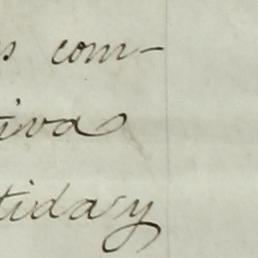 s com-
tiva
tida y